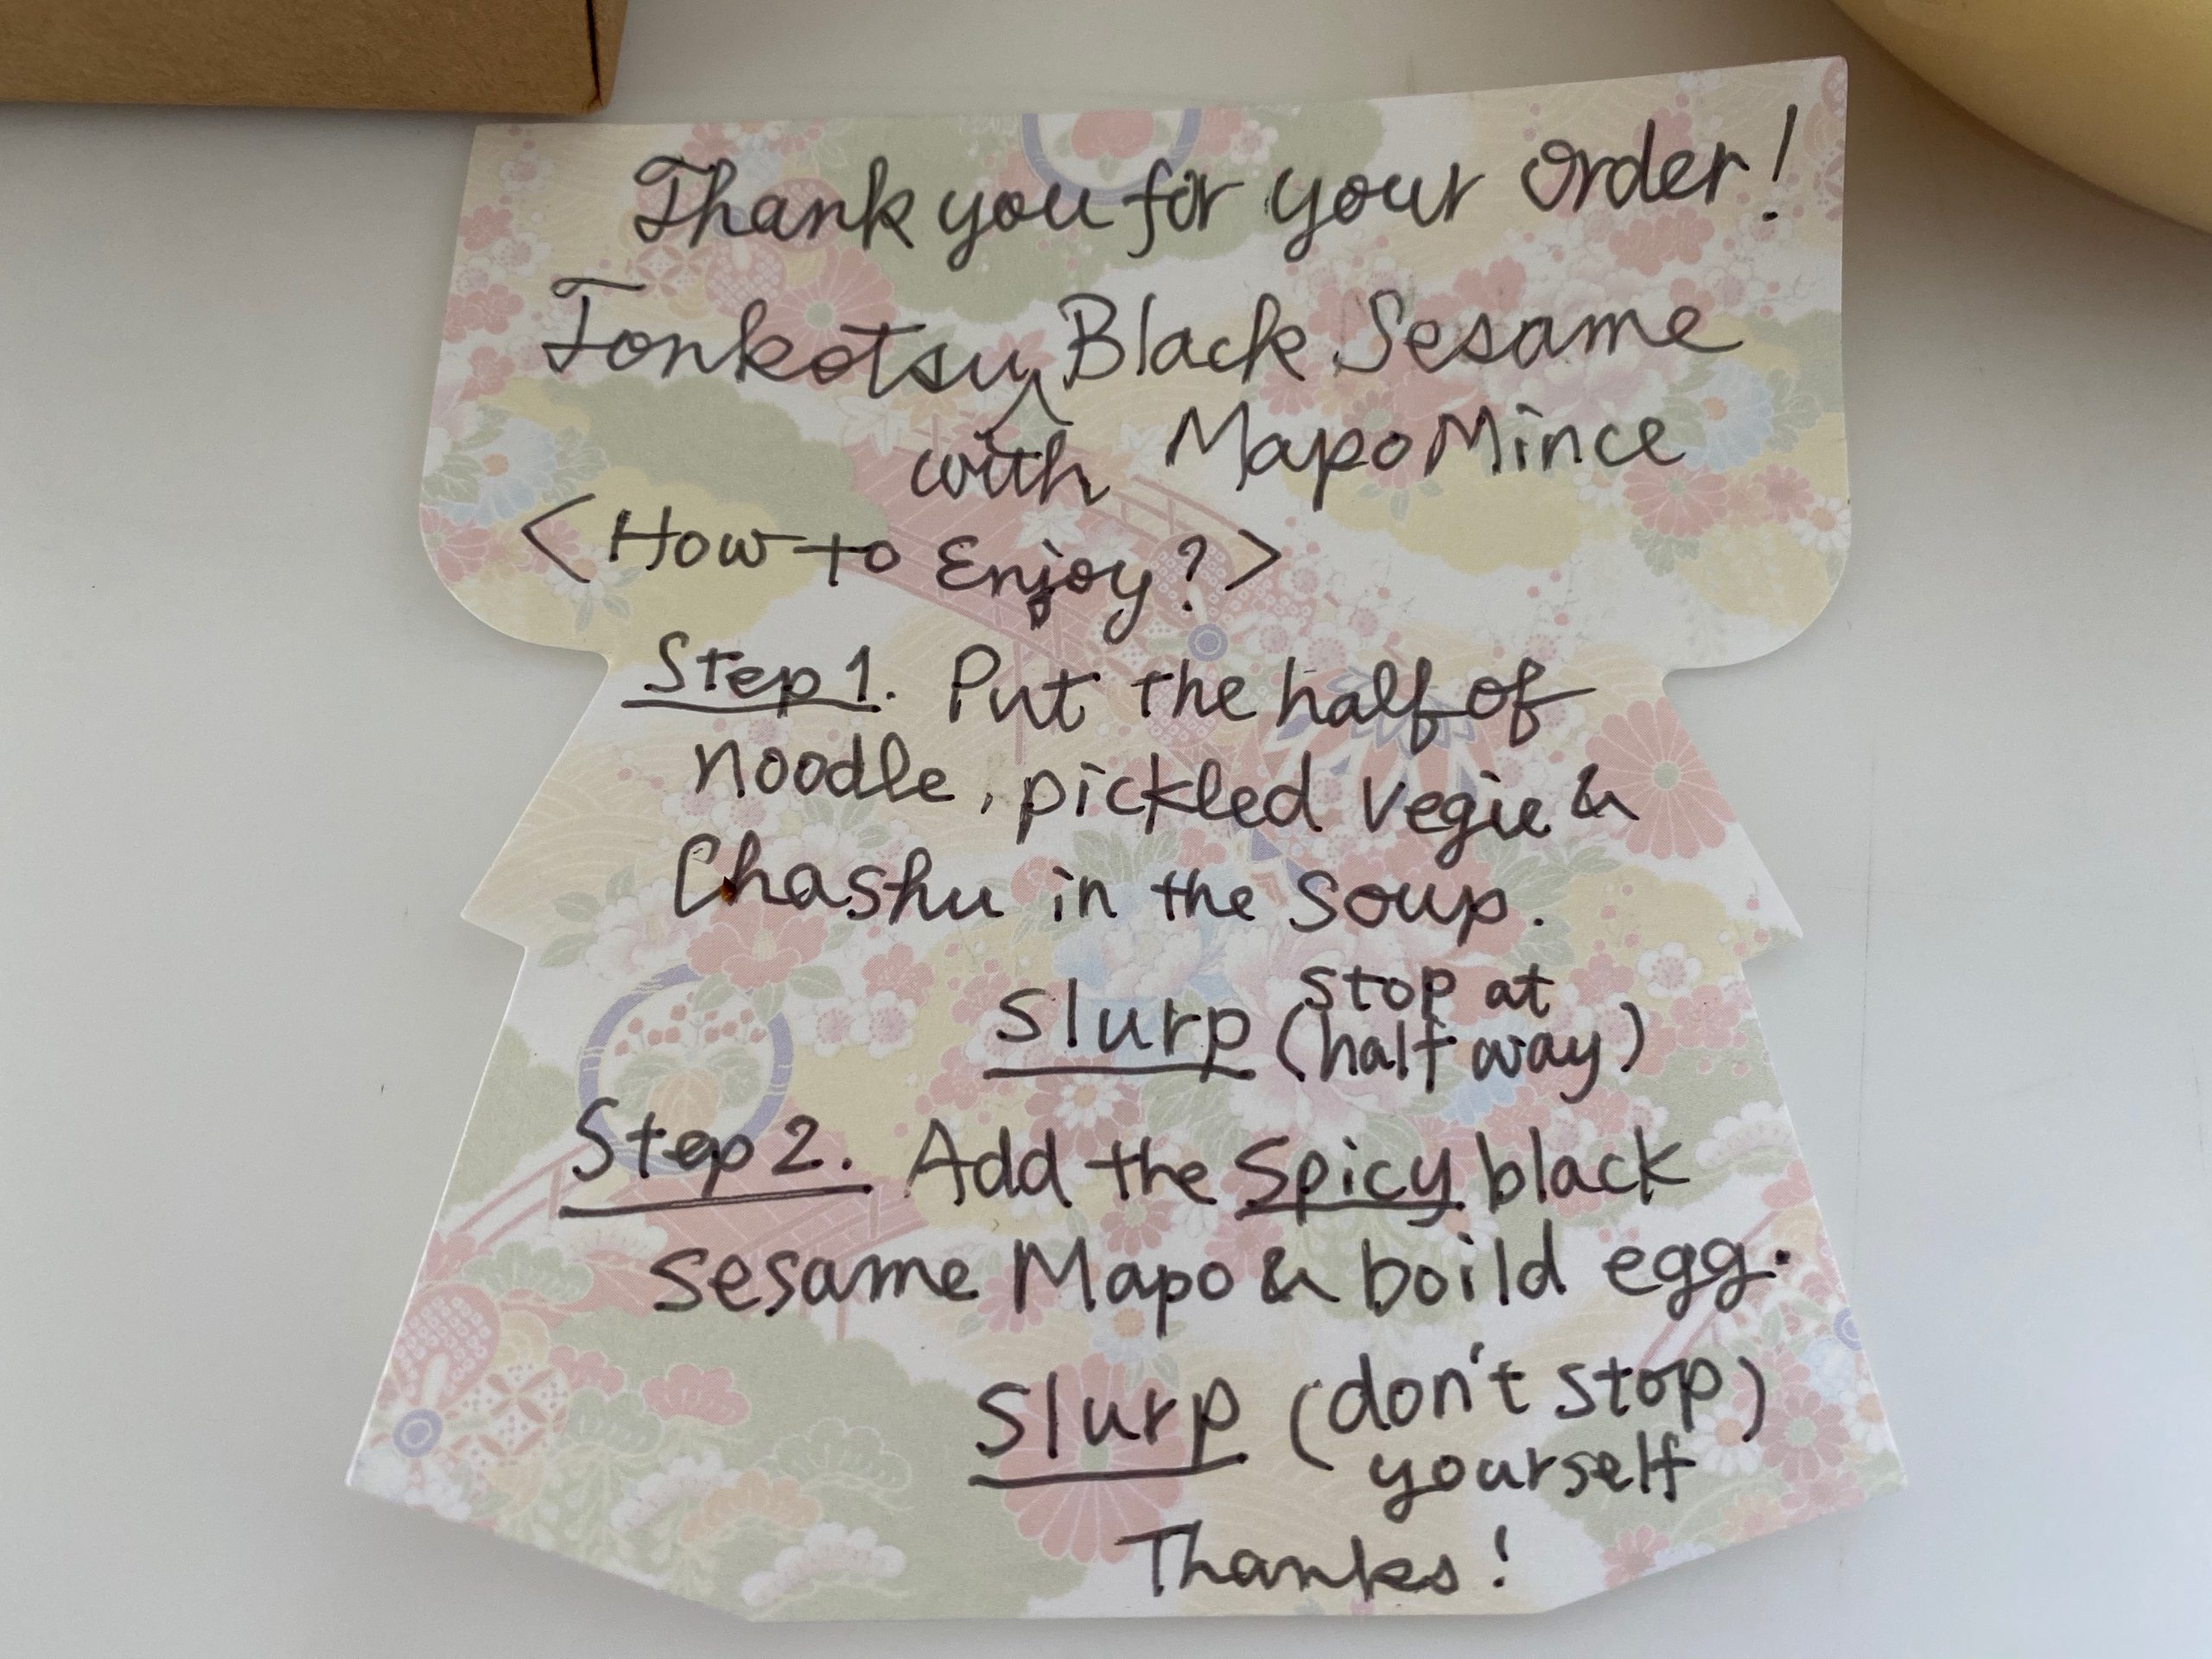 Thank you for your order!
Tonkotsu Black Sesame
with Mapo Mince
<How to Enjoy?>
Step 1. Put the half of
noodle, pickled vegie &
Chashu in the soup.
Slurp (stop at
half way)
Step 2. Add the Spicy black
sesame Mapo & boild egg.
Slurp (don't stop)
yourself
Thanks!